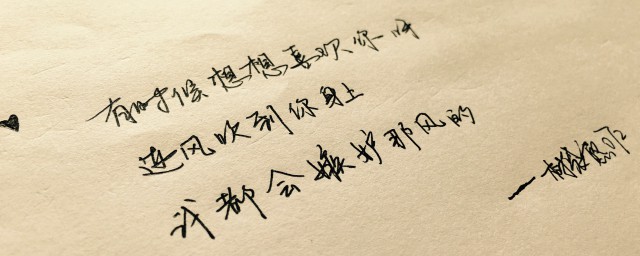 有时候想想喜欢你
连风吹到你身上
我都会嫉妒那风的